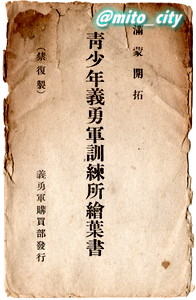 @mito_city
滿蒙開拓
靑少年義勇軍訓練所繪葉書
(禁復製)
義勇軍購買部發行